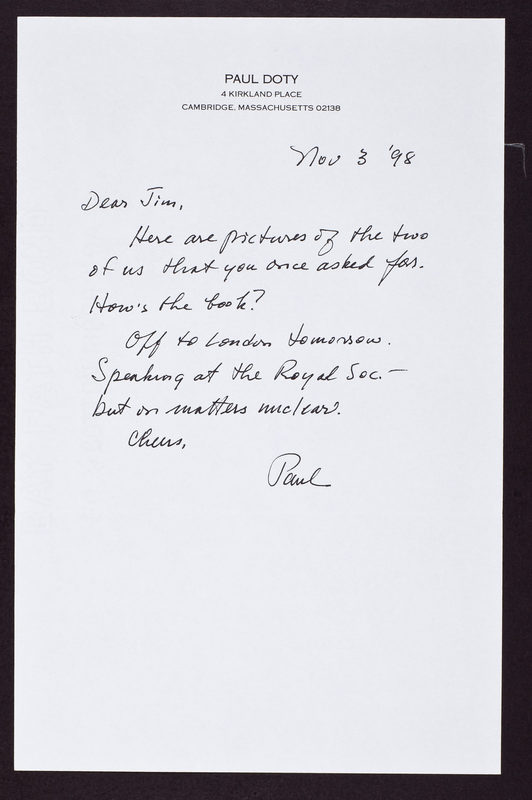 PAUL DOTY
4 KIRKLAND PLACE
CAMBRIDGE, MASSACHUSETTS 02138
Nov 3 '98
Dear Jim,
Here are pictures of the two
of us that you once asked for.
How's the book?
Off to London tomorrow.
Speaking at the Royal Soc. —
but on matters nuclear.
Cheers,
Paul